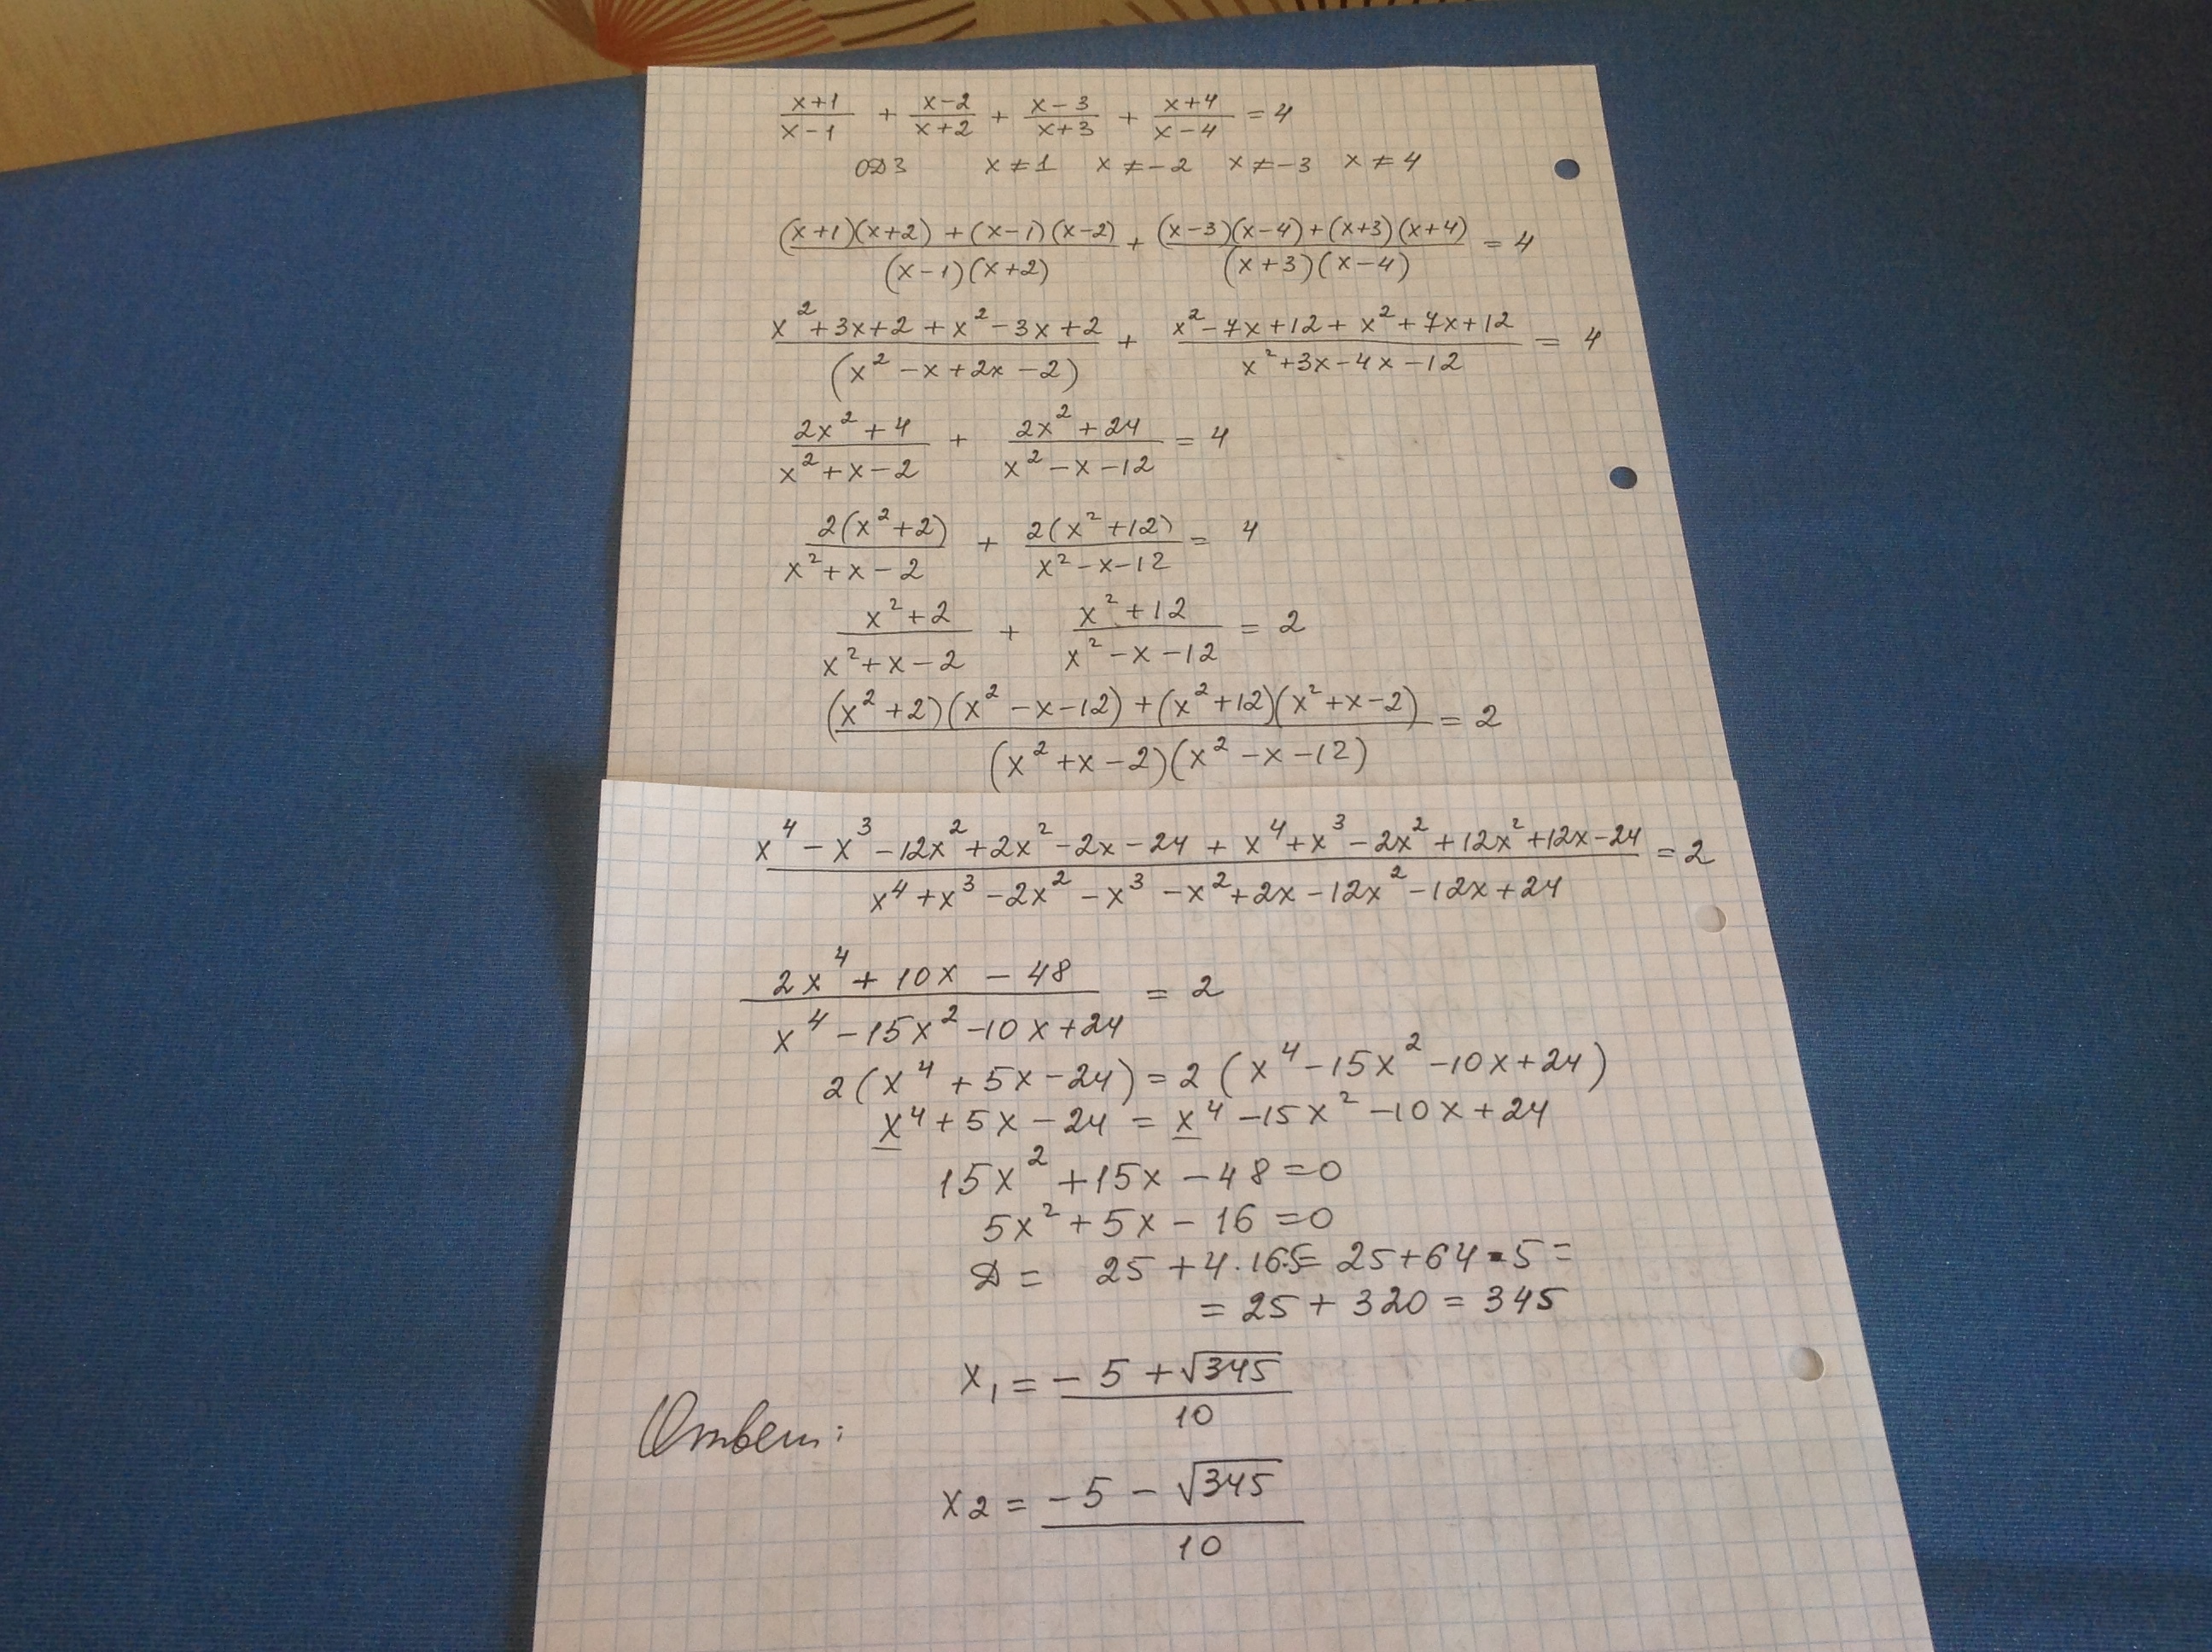 (x+1)/(x-1) + (x-2)/(x+2) + (x-3)/(x+3) + (x+4)/(x-4) = 4
ОДЗ x≠1 x≠-2 x≠-3 x≠4
((x+1)(x+2)+(x-1)(x-2))/((x-1)(x+2)) + ((x-3)(x-4)+(x+3)(x+4))/((x+3)(x-4)) = 4
(x²+3x+2+x²-3x+2)/(x²-x+2x-2) + (x²-7x+12+x²+7x+12)/(x²+3x-4x-12) = 4
(2x²+4)/(x²+x-2) + (2x²+24)/(x²-x-12) = 4
2(x²+2)/(x²+x-2) + 2(x²+12)/(x²-x-12) = 4
(x²+2)/(x²+x-2) + (x²+12)/(x²-x-12) = 2
((x²+2)(x²-x-12)+(x²+12)(x²+x-2))/((x²+x-2)(x²-x-12)) = 2
(x⁴-x³-12x²+2x²-2x-24+x⁴+x³-2x²+12x²+12x-24)/(x⁴+x³-2x²-x³-x²+2x-12x²-12x+24) = 2
(2x⁴+10x-48)/(x⁴-15x²-10x+24) = 2
2(x⁴+5x-24)=2(x⁴-15x²-10x+24)
x⁴+5x-24=x⁴-15x²-10x+24
15x²+15x-48=0
5x²+5x-16=0
D = 25+4·16·5=25+64·5=
=25+320=345
x₁=(-5+√345)/10
Ответ:
x₂=(-5-√345)/10